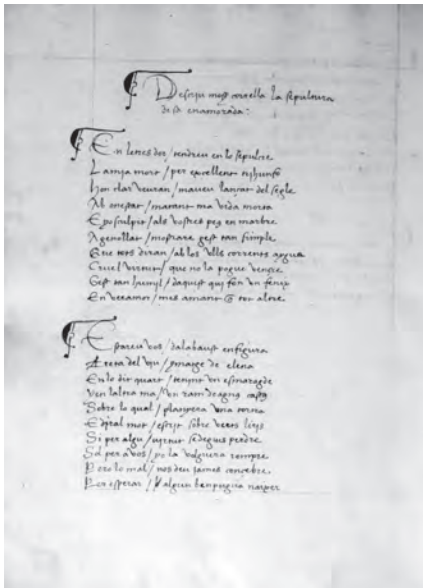 Descriu moss corella la sepultura
de sa enamorada:
En letres dor / tendreu en lo sepulcre
La mia mort / per excellent trihunfo
Hon clar veuran / maveu lançat del segle
Ab onestat / matant ma vida morta
E posculpit / als vostres peus en marbre
Agenollat / mostrare gest tan simple
Que tots diran / ab los ulls corrents aygua
Cruel virtut / que no la pogue vençre
Gest tan humil / daquest qui fon un fenix
En ver amor / mes amant que tot altre
Estareu vos / dalabaust en figura
Treta del viu / ymatge de elena
En lo dit quart / tenint un esmaragde
Y en laltra ma / un ram de agnus castus
Sobre lo qual / planyera una tortra
E dira mot / escrit sobre verts liris
Si per algu / virtut se degues perdre
Sol per a vos / yo la volguera rompre
Pero lo mal / nos deu james concebre
Per esperar / algun ben pugua naxer